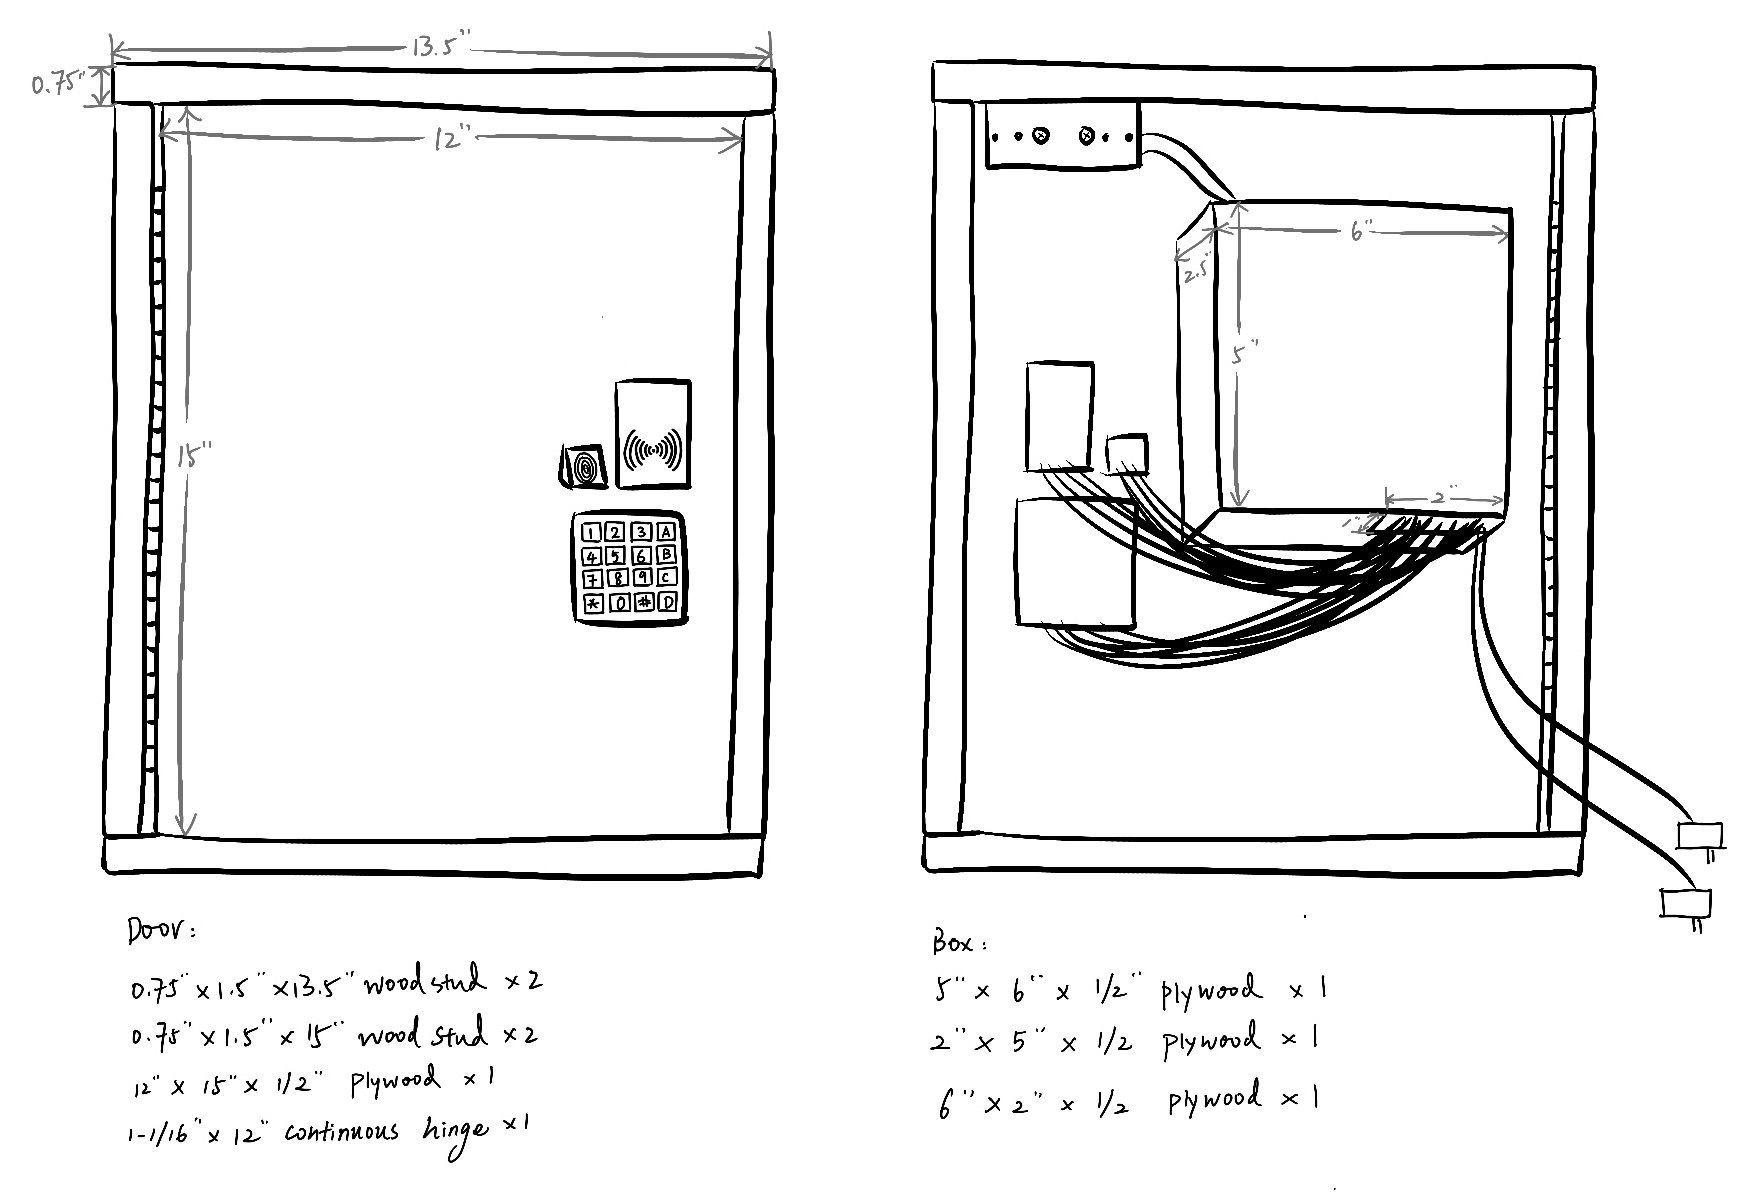 13.5"
0.75"
12"
15"
1 2 3 A
4 5 6 B
7 8 9 C
* 0 # D
6"
2.5"
5"
2"
1"
Door:
0.75" x 1.5" x 13.5" wood stud x 2
0.75" x 1.5" x 15" wood stud x 2
12" x 15" x 1/2" plywood x 1
1-1/16" x 12" continuous hinge x 1
Box:
5" x 6" x 1/2" plywood x 1
2" x 5" x 1/2 plywood x 1
6" x 2" x 1/2 plywood x 1